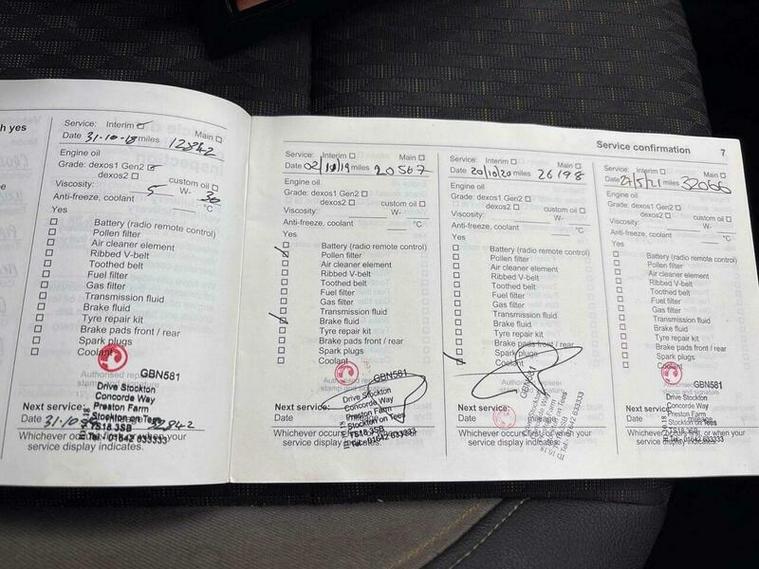 h yes
Service: Interim
Main
Date 31-10-18 miles 12842
Engine oil
Grade: dexos1 Gen2
dexos2
custom oil
Viscosity: 5 W- 30
Anti-freeze, coolant °C
Yes
Battery (radio remote control)
Pollen filter
Air cleaner element
Ribbed V-belt
Toothed belt
Fuel filter
Gas filter
Transmission fluid
Brake fluid
Tyre repair kit
Brake pads front / rear
Spark plugs
Coolant
GBN581
Drive Stockton
Concorde Way
Preston Farm
Stockton on Tees
TS18 3SB
Tel: 01642 633333
Next service:
Date
Whichever occurs first, or when your
service display indicates.
Service confirmation 7
Service: Interim Main
Date 02/10/19 miles 20567
Engine oil
Grade: dexos1 Gen2
dexos2 custom oil
Viscosity: W-
Anti-freeze, coolant °C
Yes
Battery (radio remote control)
Pollen filter
Air cleaner element
Ribbed V-belt
Toothed belt
Fuel filter
Gas filter
Transmission fluid
Brake fluid
Tyre repair kit
Brake pads front / rear
Spark plugs
Coolant
Authorised repairer
stamp and signature
GBN581
Drive Stockton
Concorde Way
Preston Farm
Stockton on Tees
TS18 3SB
Tel: 01642 633333
Next service:
Date
Whichever occurs first, or when your
service display indicates.
Service: Interim Main
Date 20/10/20 miles 26198
Engine oil
Grade: dexos1 Gen2
dexos2 custom oil
Viscosity: W-
Anti-freeze, coolant °C
Yes
Battery (radio remote control)
Pollen filter
Air cleaner element
Ribbed V-belt
Toothed belt
Fuel filter
Gas filter
Transmission fluid
Brake fluid
Tyre repair kit
Brake pads front / rear
Spark plugs
Coolant
Next service:
Date
Whichever occurs first, or when your
service display indicates.
Service: Interim Main
Date 27/5/21 miles 32066
Engine oil
Grade: dexos1 Gen2
dexos2 custom oil
Viscosity: W-
Anti-freeze, coolant °C
Yes
Battery (radio remote control)
Pollen filter
Air cleaner element
Ribbed V-belt
Toothed belt
Fuel filter
Gas filter
Transmission fluid
Brake fluid
Tyre repair kit
Brake pads front / rear
Spark plugs
Coolant
GBN581
Drive Stockton
Concorde Way
Preston Farm
Stockton on Tees
TS18 3SB
Tel: 01642 633333
Next service:
Date
Whichever occurs first, or when your
service display indicates.